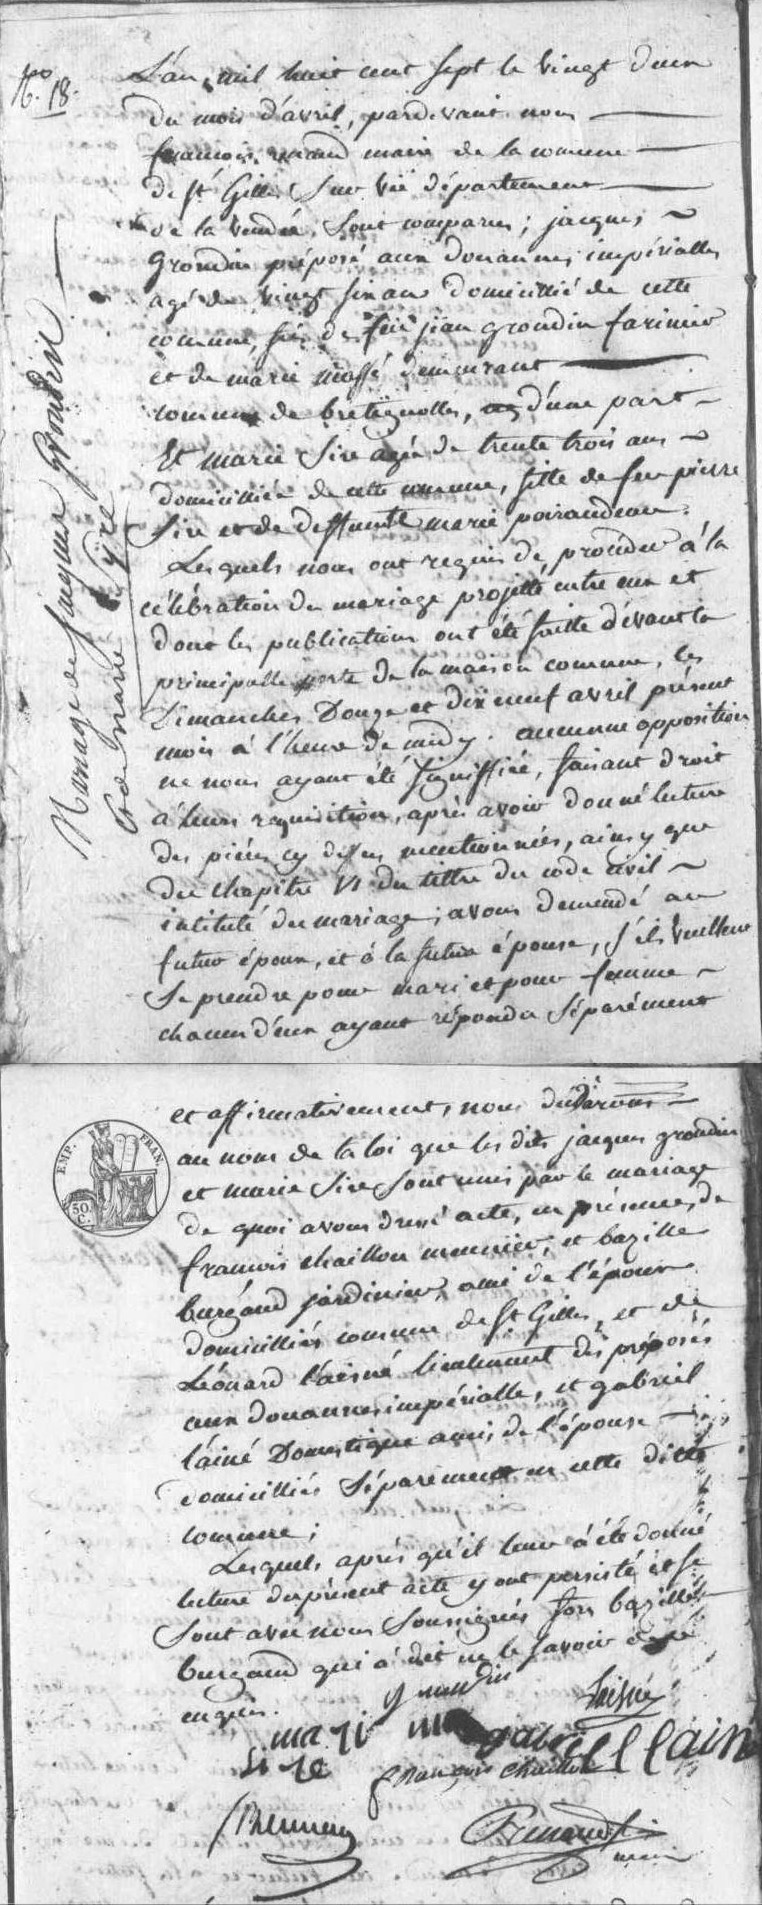 No. 18.
Mariage de Jacques Grondin
et de Marie Syre
L'an mil huit cent sept le vingt deux
du mois d'avril, pardevant nous
françois renaud maire de la comune
de St Gilles sur vie département
de la vendée, sont comparus; jacques
Grondin préposé aux douannes impérialles
agé de vingt six ans domicillié de cette
comune, fils de feu jean grondin farinier
et de marie massé demeurant
comune de bretignolles, d'une part
Et marie Sire agée de trente trois ans
domicilliée de cette comune, fille de feu pierre
Sire et de deffunte marie poiraudeau.
Lesquels nous ont requis de procéder à la
célébration du mariage projetté entre eux et
dont les publications ont été faitte dévant la
principalle porte de la maison comune, les
Dimanches Douze et dix neuf avril présent
mois à l'heure de midy. aucunne opposition
ne nous ayant été signiffiée, faisant droit
à leurs réquisition, après avoir donné lecture
des pièces cy dessus mentionnées, ainsy que
du chapitre VI du tittre du code civil
intitulé du mariage; avons demandé au
futur époux, et à la future épouse, s'ils veullent
se prendre pour mari et pour femme
chacun d'eux ayant répondu séparément
et affirmativement, nous déclarons
au nom de la loi que les dits jacques grondin
et marie Sire sont unis par le mariage
de quoi avons dressé acte, en présence, de
françois chaillou meunier, et bazille
burgaud jardinier, ami de l'époux
domicilliés comune de St Gilles, et de
Léonard l'aisné lieutenant des préposés
aux douannes impérialles, et gabriel
l'ainé Domestique amis de l'épouse
domicilliés séparement en cette ditte
comune;
EMP. FRAN.
50. C.
Lesquels après qu'il leur à été donné
lecture du présent acte y ont persisté et se
sont avec nous soussignés fors bazille
burgaud qui à dit ne le savoir de ce
enquis.
grondin
Laisné
mari
si re
gabriel lain
françois chaillou
Renaud
maire